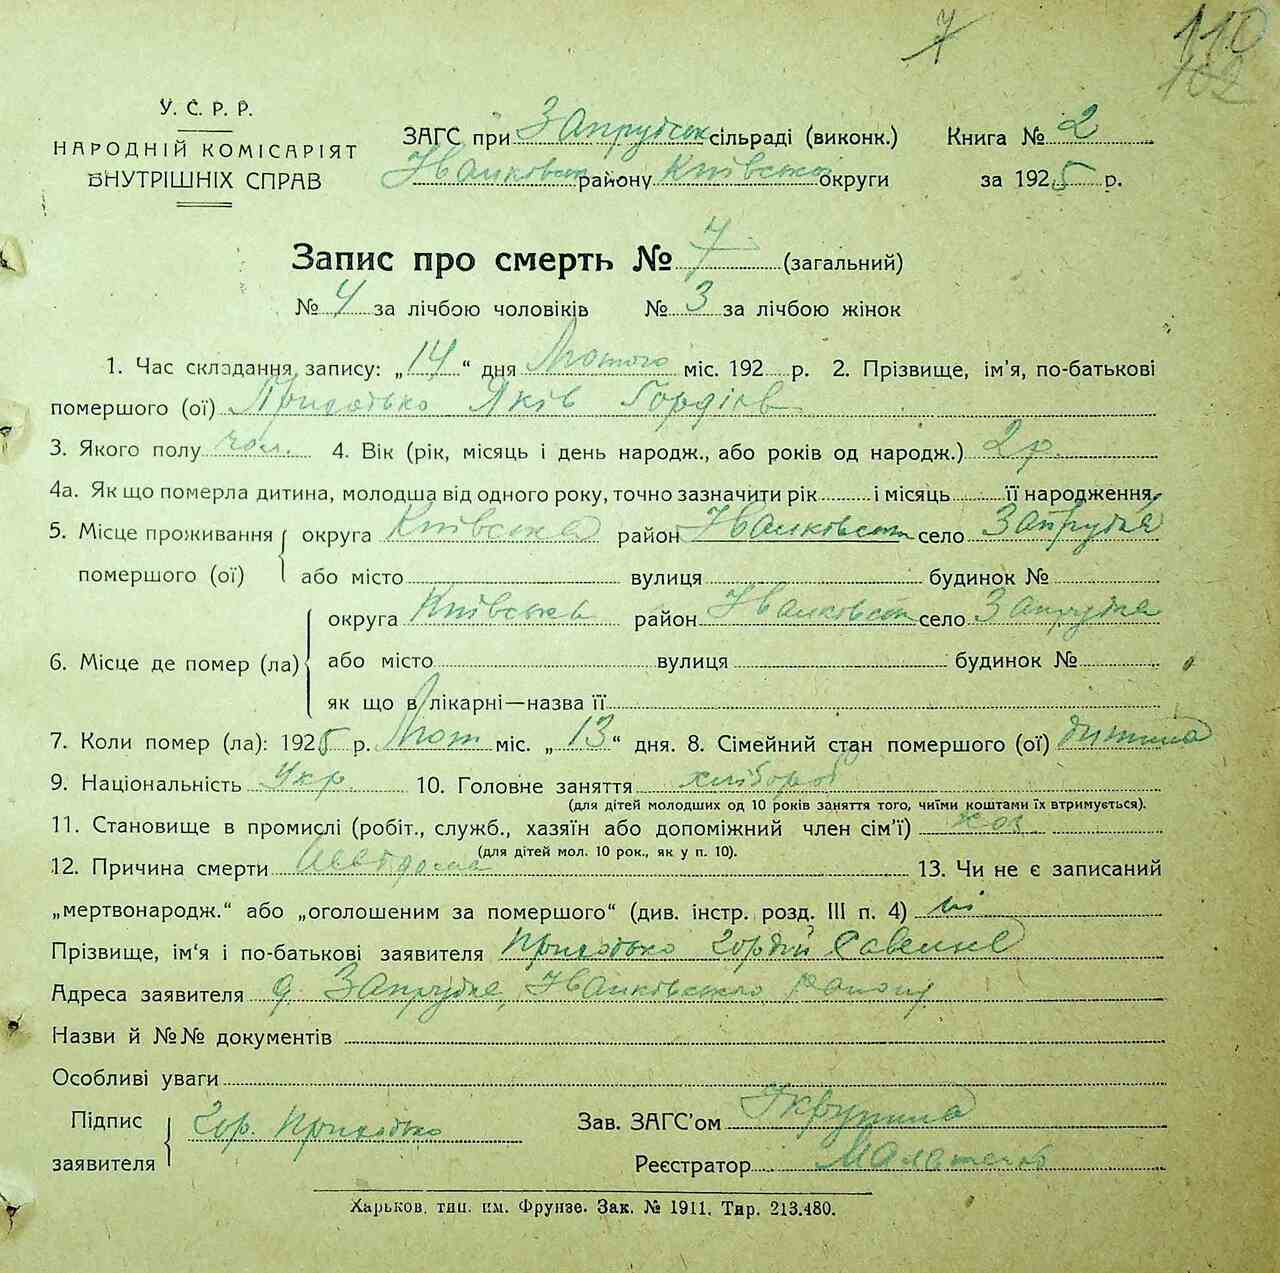 7
110
102
У. С. Р. Р.
НАРОДНІЙ КОМІСАРІЯТ
ВНУТРІШНІХ СПРАВ
ЗАГС при Запрудськ сільраді (виконк.) Книга № 2
Іванковськ району Київської округи за 1925 р.
Запис про смерть № 7 (загальний)
№ 4 за лічбою чоловіків № 3 за лічбою жінок
1. Час складання запису: „14“ дня Лютого міс. 192 р. 2. Прізвище, ім'я, по-батькові
помершого (ої) Приходько Яків Гордіїв
3. Якого полу чол. 4. Вік (рік, місяць і день народж., або років од народж.) 2 р.
4а. Як що померла дитина, молодша від одного року, точно зазначити рік і місяць її народження.
5. Місце проживання помершого (ої) округа Київська район Іванковськ село Запрудка
або місто вулиця будинок №
6. Місце де помер (ла) округа Київська район Іванковськ село Запрудка
або місто вулиця будинок №
як що в лікарні—назва її
7. Коли помер (ла): 1925 р. Лют міс. „13“ дня. 8. Сімейний стан помершого (ої) дитина
9. Національність Укр. 10. Головне заняття хлібороб
(для дітей молодших од 10 років заняття того, чиїми коштами їх втримується).
11. Становище в промислі (робіт., служб., хазяїн або допоміжний член сім'ї) хоз.
(для дітей мол. 10 рок., як у п. 10).
12. Причина смерти 13. Чи не є записаний
„мертвонародж.“ або „оголошеним за помершого“ (див. інстр. розд. III п. 4) ні
Прізвище, ім'я і по-батькові заявителя Приходько Гордій
Адреса заявителя с. Запрудка Іванковського району
Назви й №№ документів
Особливі уваги
Підпис заявителя Гор. Приходько Зав. ЗАГС'ом
Реєстратор
Харьков. тип. им. Фрунзе. Зак. № 1911. Тир. 213.480.